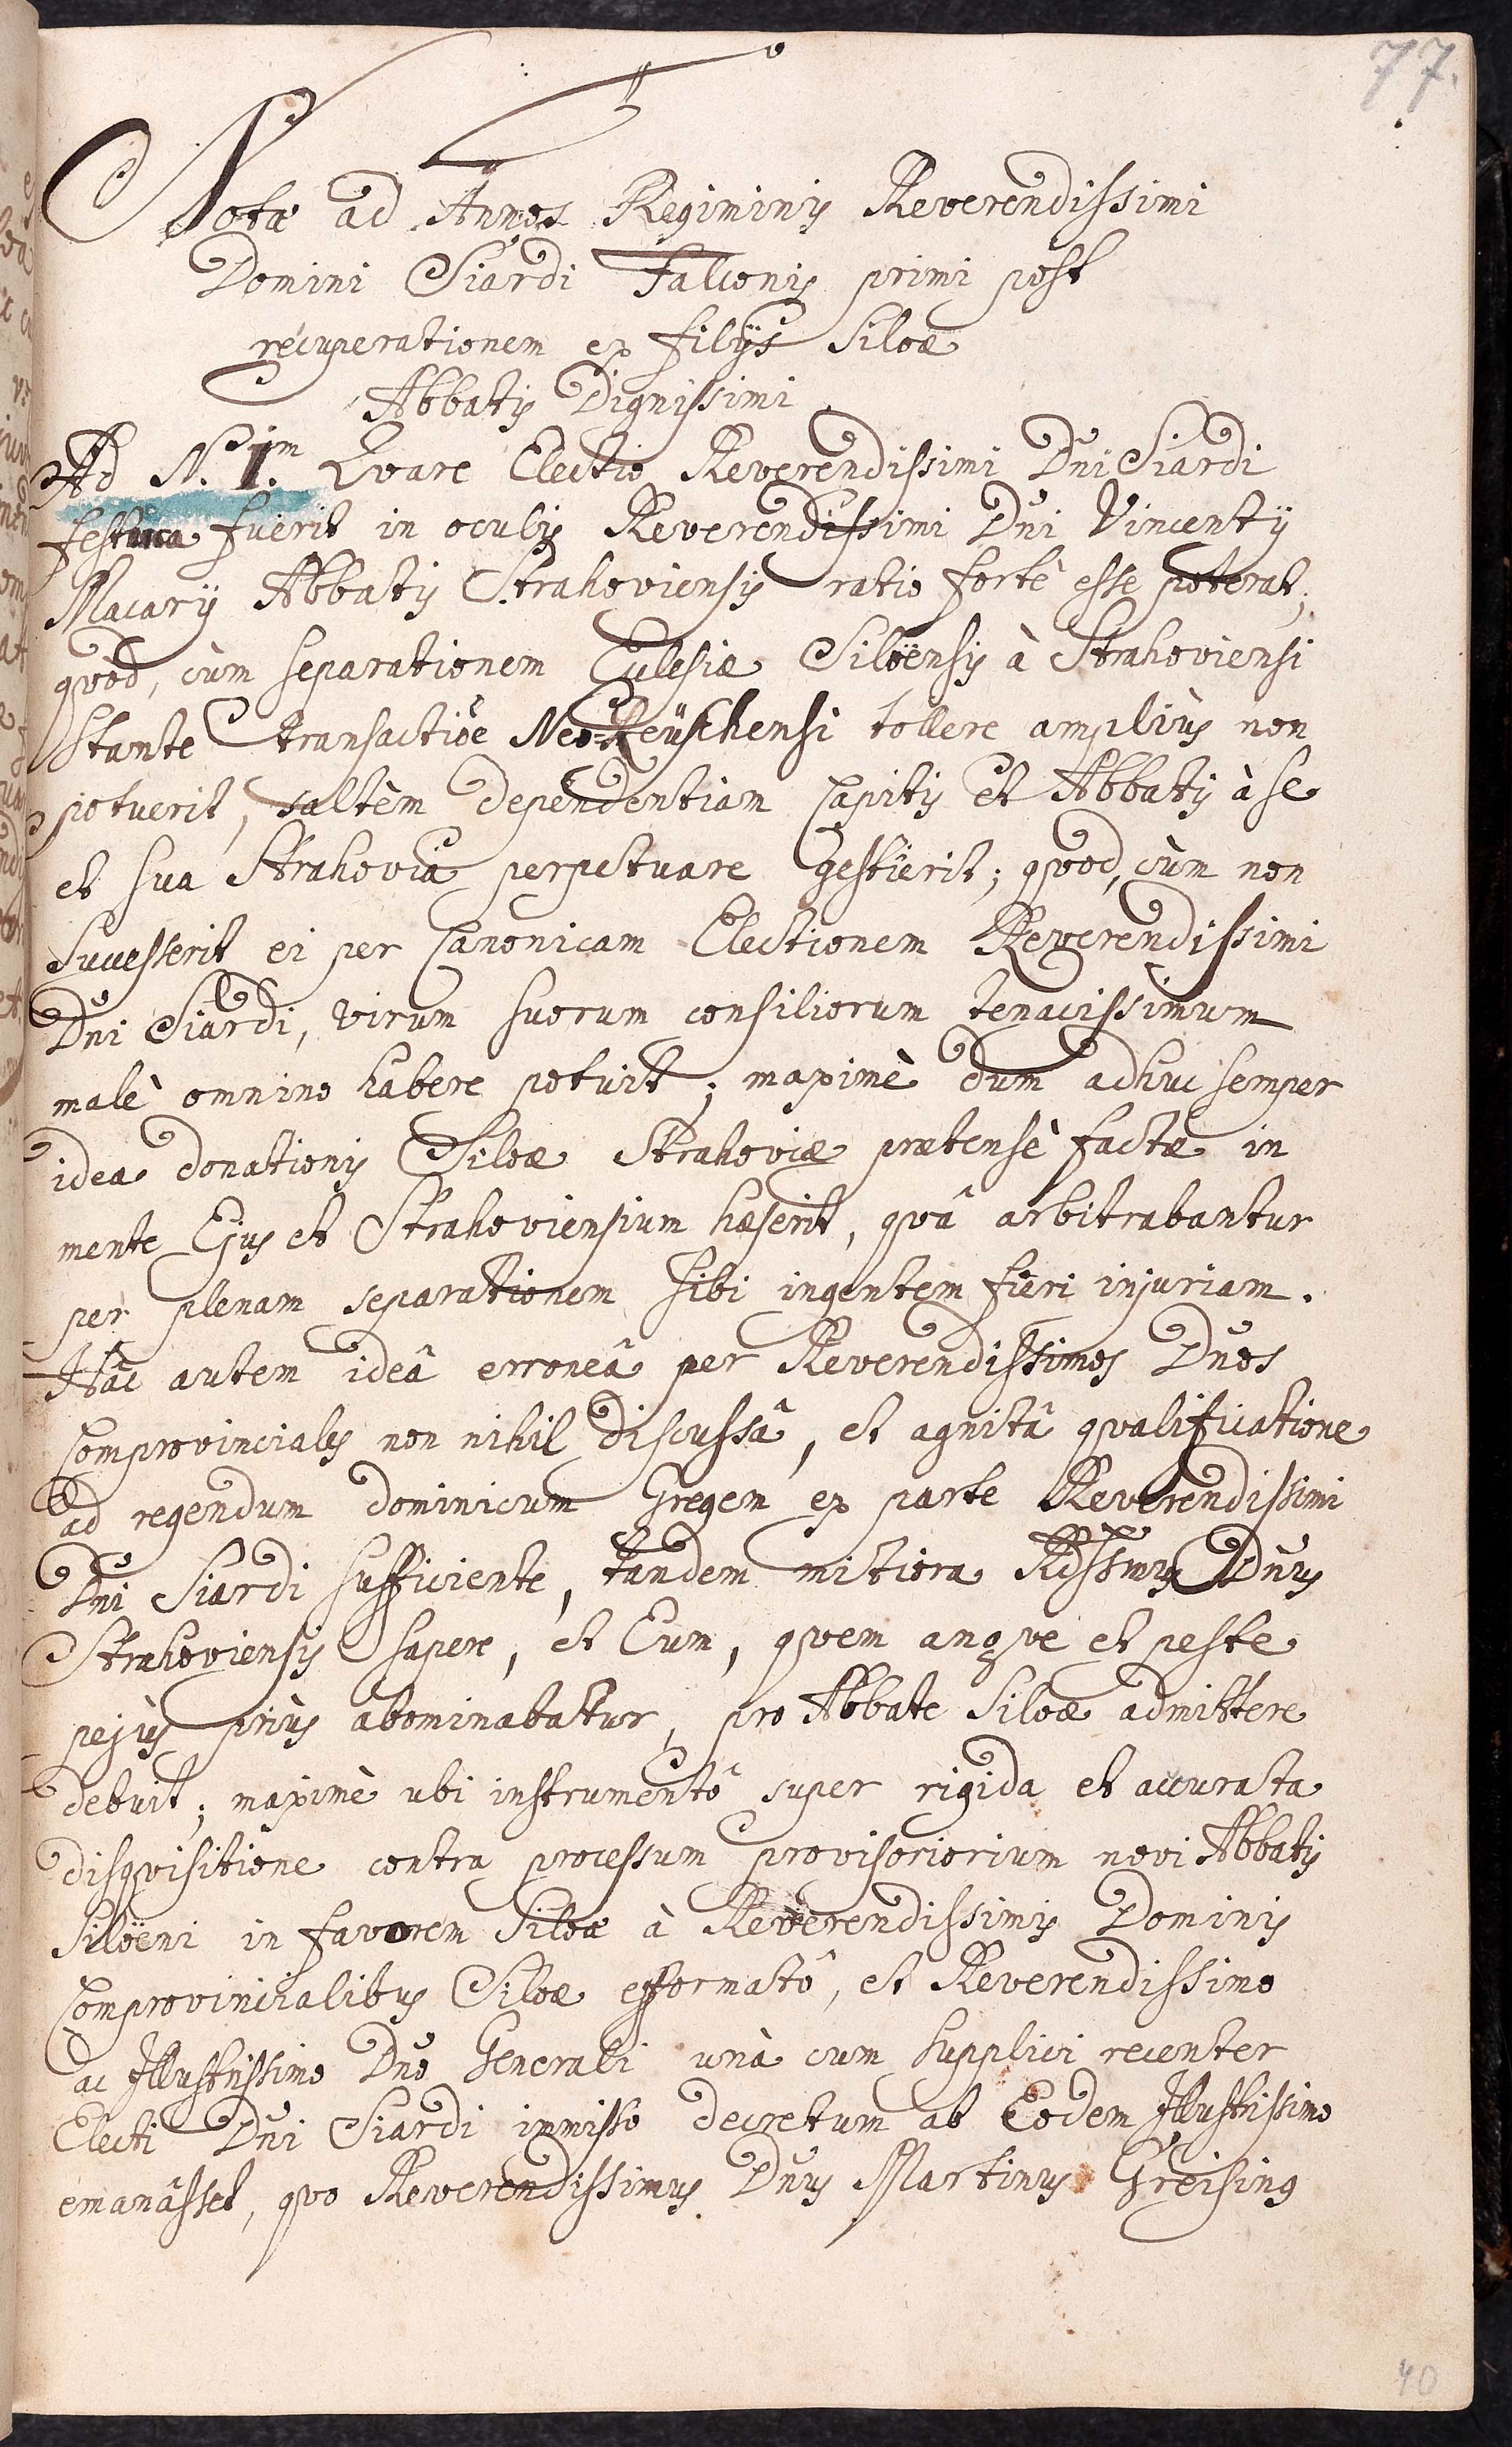 77.
Notæ ad Annos Regiminis Reverendissimi
Domini Siardi Falconis primi post
recuperationem ex filijs Siloæ
Abbatis Dignissimi
Ad N. 1.m Qvare Electio Reverendissimi Dn̄i Siardi
festuca fuerit in oculis Reverendissimi Dn̄i Vincentij
Macarij Abbatis Strahoviensis ratio fortè esse poterat;
qvòd, cùm separationem Ecclesiæ Siloënsis à Strahoviensi
stante transactiōe Neo-Reüschensi tollere ampliùs non
potuerit, saltèm dependentiam Capitis et Abbatis à se
et sua Strahoviâ perpetuare gestierit; qvod, cùm non
successerit ei per Canonicam Electionem Reverendissimi
Dn̄i Siardi, virum suorum consiliorum tenacissimum
malè omnino habere potuit; maximè dum adhuc semper
idea donationis Siloæ Strahoviæ prætensè factæ in
mente Ejus et Strahoviensium hæserit, qvâ arbitrabantur
per plenam separationem sibi ingentem fieri injuriam.
Hâc autem ideâ erroneâ per Reverendissimos Dn̄os
Comprovinciales non nihil discussâ, et agnitâ qvalificatione
ad regendum dominicum Gregem ex parte Reverendissimi
Dn̄i Siardi sufficiente, tandem mitiora Rdssmus Dn̄us
Strahoviensis sapere, et Eum, qvem angve et peste
pejùs priùs abominabatur, pro Abbate Siloæ admittere
debuit; maximè ubi instrumentô super rigida et accurata
disqvisitione contra processum provisoriorium novi Abbatis
Siloëni in favorem Siloæ à Reverendissimis Dominis
Comprovincialibus Siloæ efformatô, et Reverendissimo
ac Illustrissimo Dn̄o Generali unà cum supplici recenter
Electi Dn̄i Siardi immisso decretum ab Eodem Illustrissimo
emanâsset, qvo Reverendissimus Dn̄us Martinus Greising
40